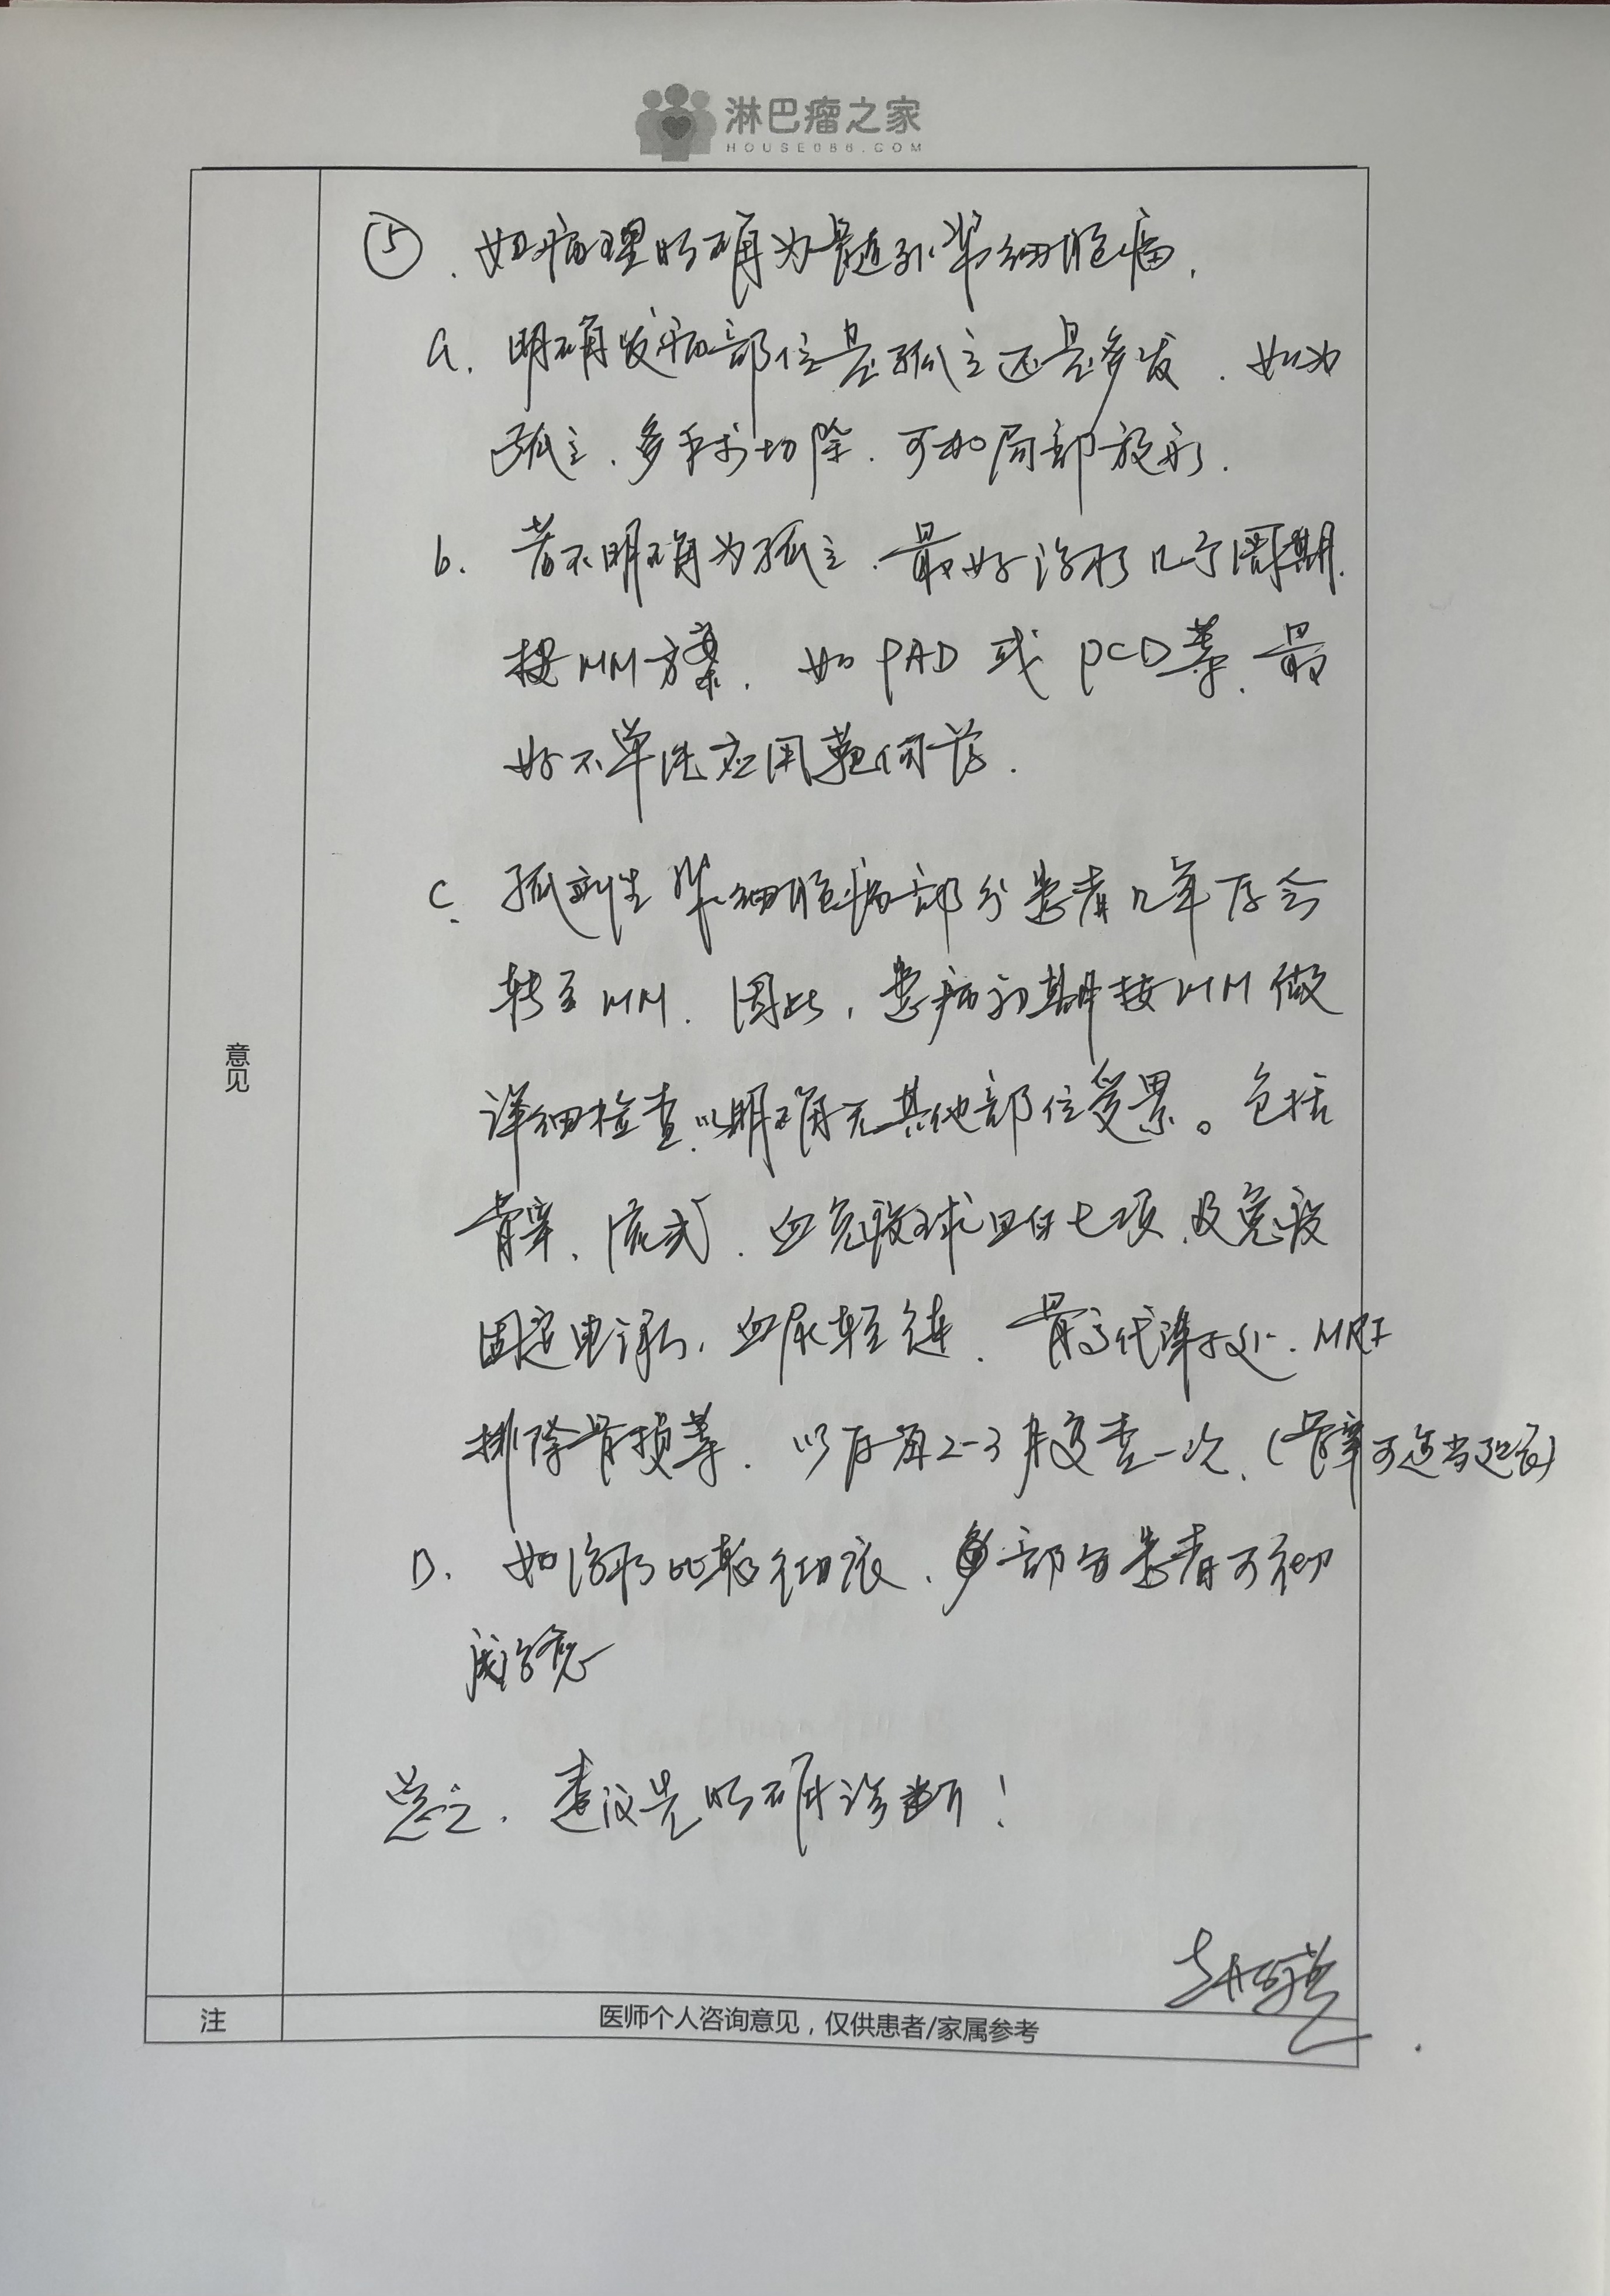 淋巴瘤之家
HOUSE086.COM
⑤、如病理明确为髓外浆细胞瘤，
a. 明确发病部位是孤立还是多发．如为
孤立、多手术切除．可加局部放疗．
b. 若不明确为孤立．最好治疗几个周期．
按MM方案． 如PAD或PCD等、最
好不单纯应用靶向药．
C. 孤立性浆细胞瘤部分患者几年后会
转至MM．因此，患病初期按MM做
详细检查．以明确无其他部位受累。包括
骨穿、流式、血免疫球蛋白七项、及免疫
固定电泳，血尿轻链、骨 MRI
排除骨损等．以后每2-3月复查一次．(骨穿可适当延长)
D. 如治疗比较彻底、部分患者可
成治愈
总之．建议先明确诊断！
意见
注
医师个人咨询意见，仅供患者/家属参考